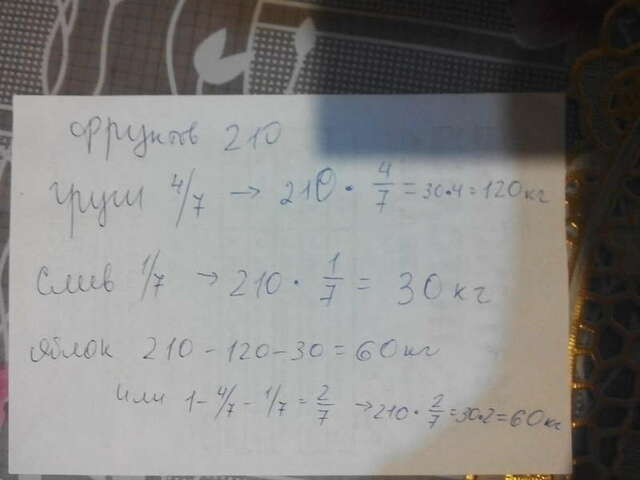 Фруктов 210
Груш 4/7 → 210 · 4/7 = 30·4 = 120 кг
Слив 1/7 → 210 · 1/7 = 30 кг
Яблок 210 - 120 - 30 = 60 кг
или 1 - 4/7 - 1/7 = 2/7 → 210 · 2/7 = 30·2 = 60 кг